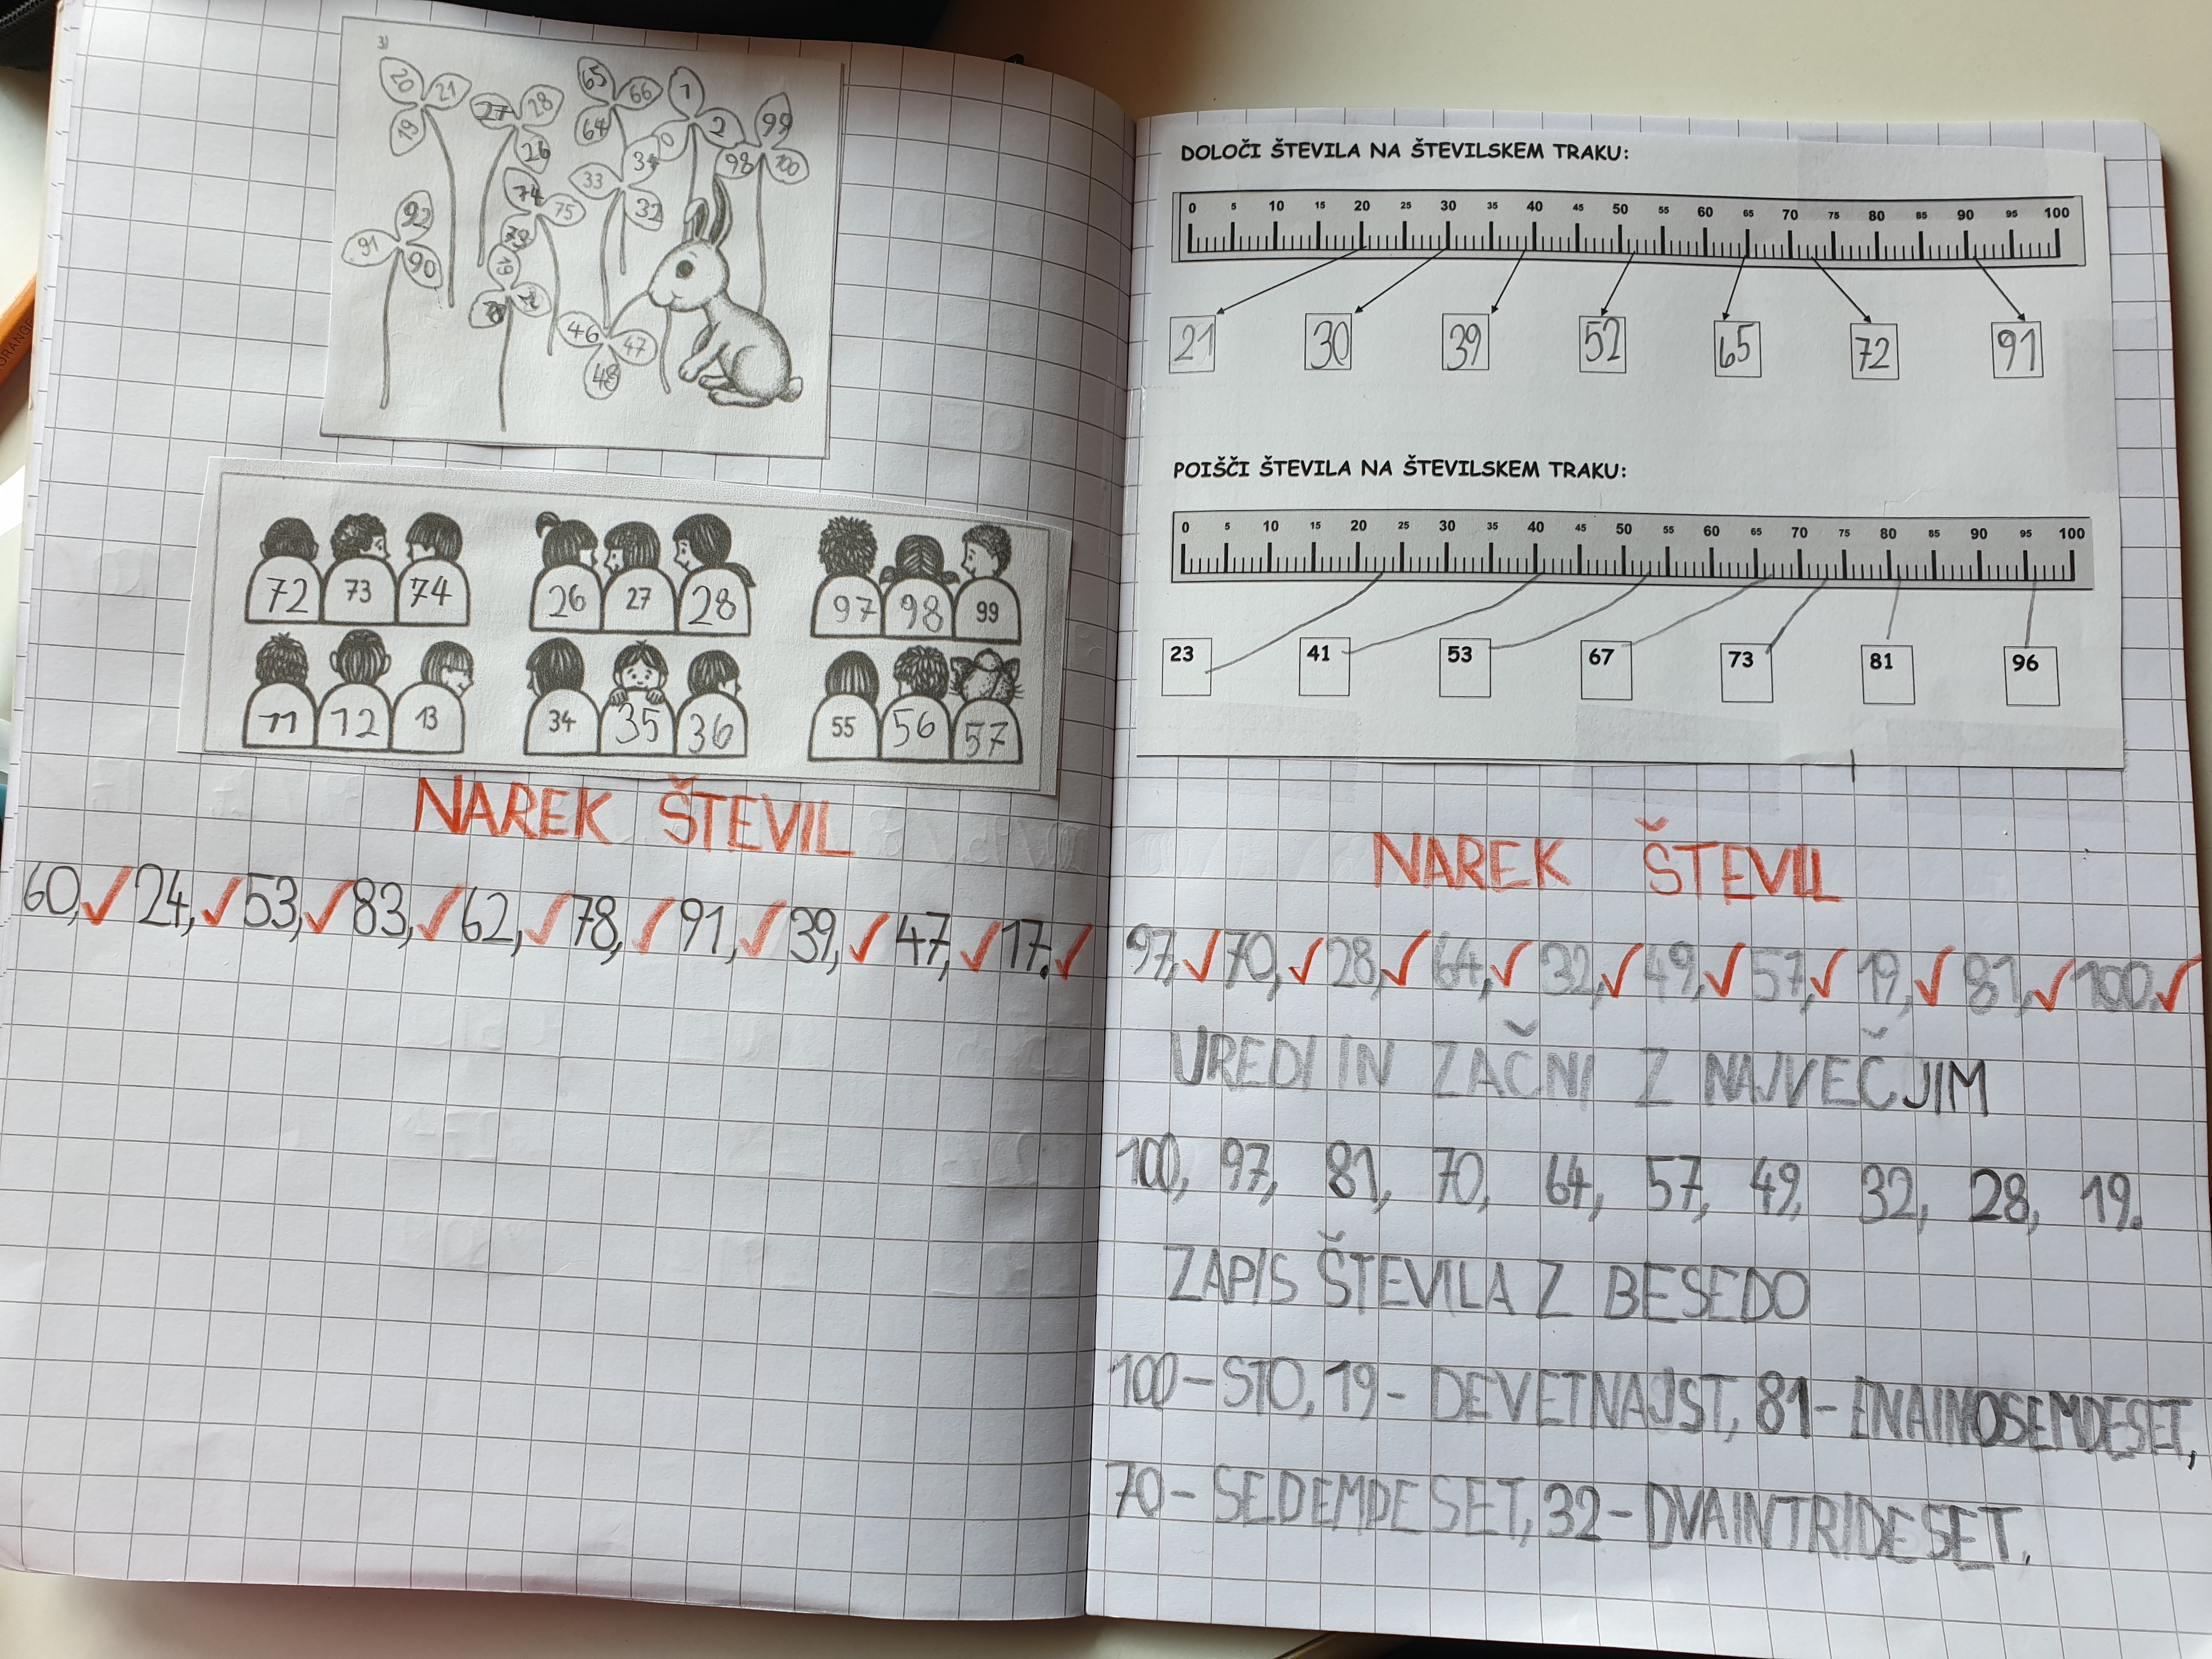 3)
20 21 19
27 28 26
65 66 64
1 2 0
99 98 100
33 32
74 75 73
92 91 90
46 47 48
72 73 74 26 27 28 97 98 99
11 12 13 34 35 36 55 56 57
NAREK ŠTEVIL
60, 24, 53, 83, 62, 78, 91, 39, 47, 17.
DOLOČI ŠTEVILA NA ŠTEVILSKEM TRAKU:
0 5 10 15 20 25 30 35 40 45 50 55 60 65 70 75 80 85 90 95 100
21 30 39 52 65 72 91
POIŠČI ŠTEVILA NA ŠTEVILSKEM TRAKU:
0 5 10 15 20 25 30 35 40 45 50 55 60 65 70 75 80 85 90 95 100
23 41 53 67 73 81 96
NAREK ŠTEVIL
97, 70, 28, 64, 32, 49, 57, 19, 81, 100.
UREDI IN ZAČNI Z NAJVEČJIM
100, 97, 81, 70, 64, 57, 49, 32, 28, 19.
ZAPIS ŠTEVILA Z BESEDO
100 – STO, 19 - DEVETNAJST, 81 - ENAINOSEMDESET,
70 - SEDEMDESET, 32 - DVAINTRIDESET.